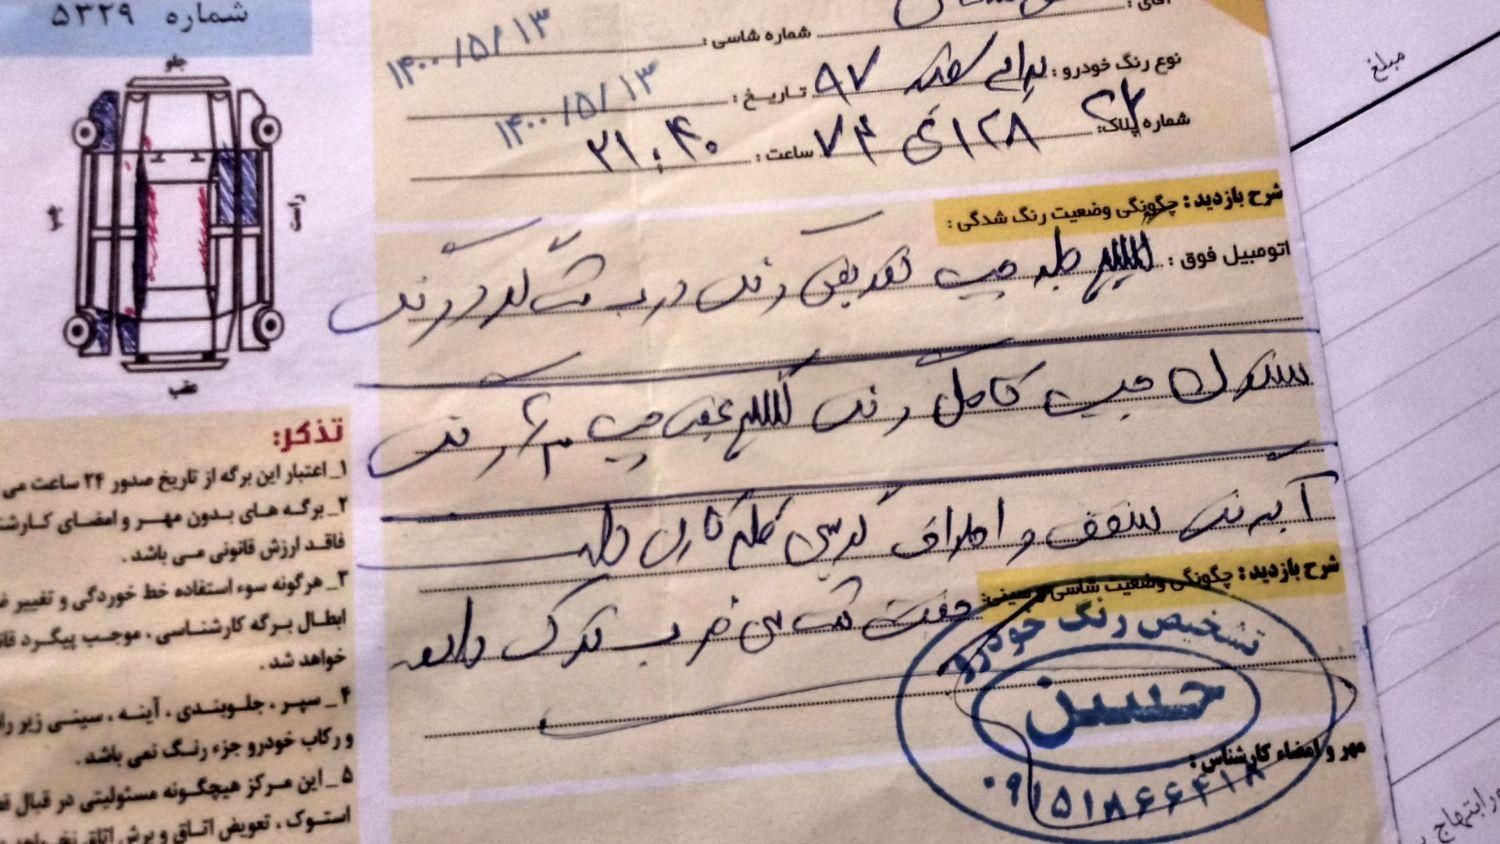 شماره ۵۳۲۹
جلو
راست
عقب
آقای :
شماره شاسی :
۱۴۰۰/۵/۱۳
نوع رنگ خودرو : پراید سفید ۹۷ تاریخ : ۱۴۰۰/۵/۱۳
شماره پلاک: ۱۲۸ ۷۴ ساعت : ۲۱:۴۰
شرح بازدید : چگونگی وضعیت رنگ شدگی :
اتومبیل فوق : گلگیر جلو چپ تعویض رنگ درب شاگرد رنگ
ستون چپ کامل رنگ گلگیر عقب چپ رنگ
آبرنگ سقف و اطراف
شرح بازدید : چگونگی وضعیت شاسی و سینی:
جفت شاسی ضرب ترک دارد
تشخیص رنگ خودرو
حسین
مهر و امضاء کارشناس :
۰۹۱۵۱۸۶۶۴۱۸
تذکر:
۱_ اعتبار این برگه از تاریخ صدور ۲۴ ساعت می
۲_ برگه های بدون مهر و امضای کارشنا
فاقد ارزش قانونی می باشد .
۳_ هرگونه سوء استفاده خط خوردگی و تغییر
ابطال برگه کارشناسی ، موجب پیگرد قان
خواهد شد .
۴_ سپر ، جلوبندی ، آینه ، سینی زیر را
و رکاب خودرو جزء رنگ نمی باشد .
۵_ این مرکز هیچگونه مسئولیتی در قبال
استوک ، تعویض اتاق و برش اتاق
مبلغ